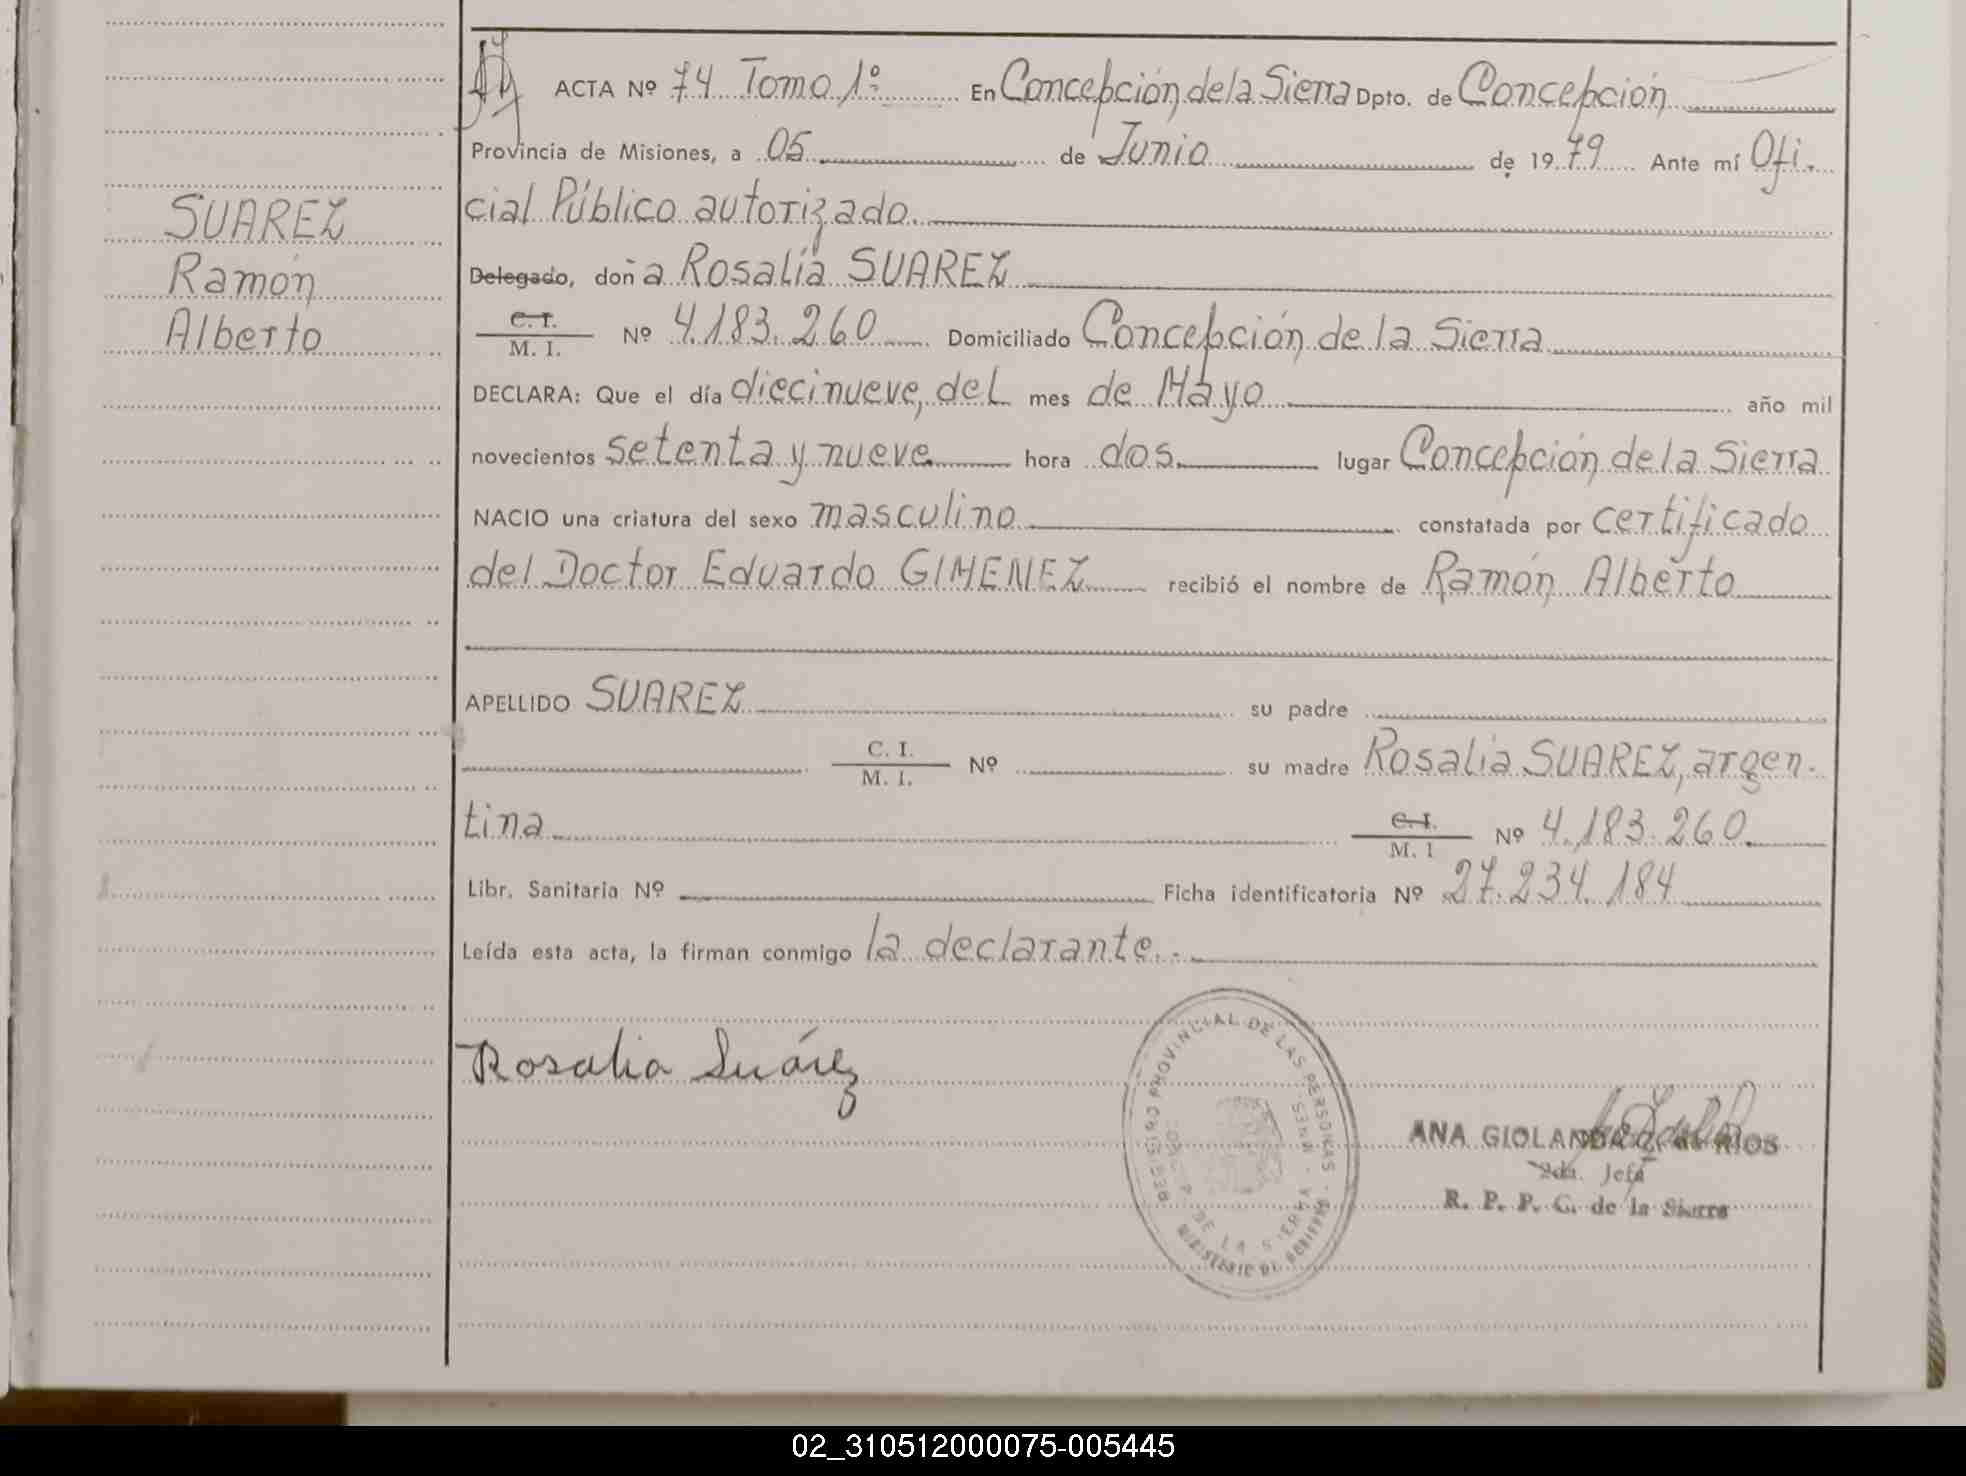 ACTA Nº 74 Tomo 1º En Concepción de la Sierra Dpto. de Concepción
Provincia de Misiones, a 05 de Junio de 1979 Ante mí Ofi-
cial Público autorizado.
Delegado, doña Rosalía SUAREZ
C. I.
M. I. Nº 4.183.260 Domiciliado Concepción de la Sierra
DECLARA: Que el día diecinueve, del mes de Mayo año mil
novecientos setenta y nueve hora dos lugar Concepción de la Sierra
NACIO una criatura del sexo masculino constatada por certificado
del Doctor Eduardo GIMENEZ recibió el nombre de Ramón Alberto
APELLIDO SUAREZ su padre
C. I.
M. I. Nº su madre Rosalía SUAREZ, argen-
tina
C. I.
M. I Nº 4.183.260.
Libr. Sanitaria Nº Ficha identificatoria Nº 27.234.184
Leída esta acta, la firman conmigo la declarante.-
SUAREZ
Ramón
Alberto
Rosalia Suárez
REGISTRO PROVINCIAL DE LAS PERSONAS
DE LA SIERRA - MNES.
MINISTERIO DE GOBIERNO
ANA GIOLANDA de RIOS
2da. Jefa
R. P. P. C. de la Sierra
02_310512000075-005445